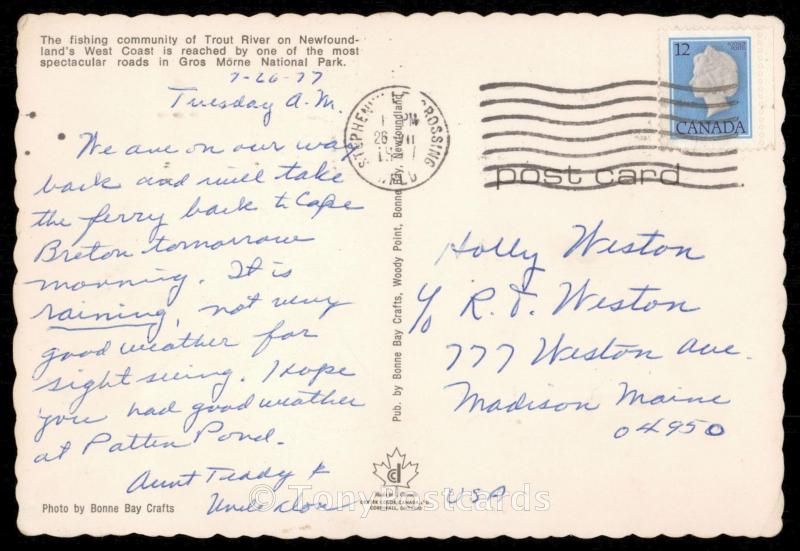 The fishing community of Trout River on Newfound-
land's West Coast is reached by one of the most
spectacular roads in Gros Morne National Park.
7-26-77
Tuesday A.M.
We are on our way
back and will take
the ferry back to Cape
Breton tomorrow
morning. It is
raining, not very
good weather for
sight seeing. I hope
you had good weather
at Patten Pond.
Aunt Teddy &
Uncle Don
Photo by Bonne Bay Crafts
Pub. by Bonne Bay Crafts, Woody Point, Bonne Bay, Newfoundland
CROSSING
PM
26
NFLD
12
CANADA
post card
Holly Weston
c/o R. T. Weston
777 Weston Ave.
Madison Maine
04950
USA
© TonyPostcards